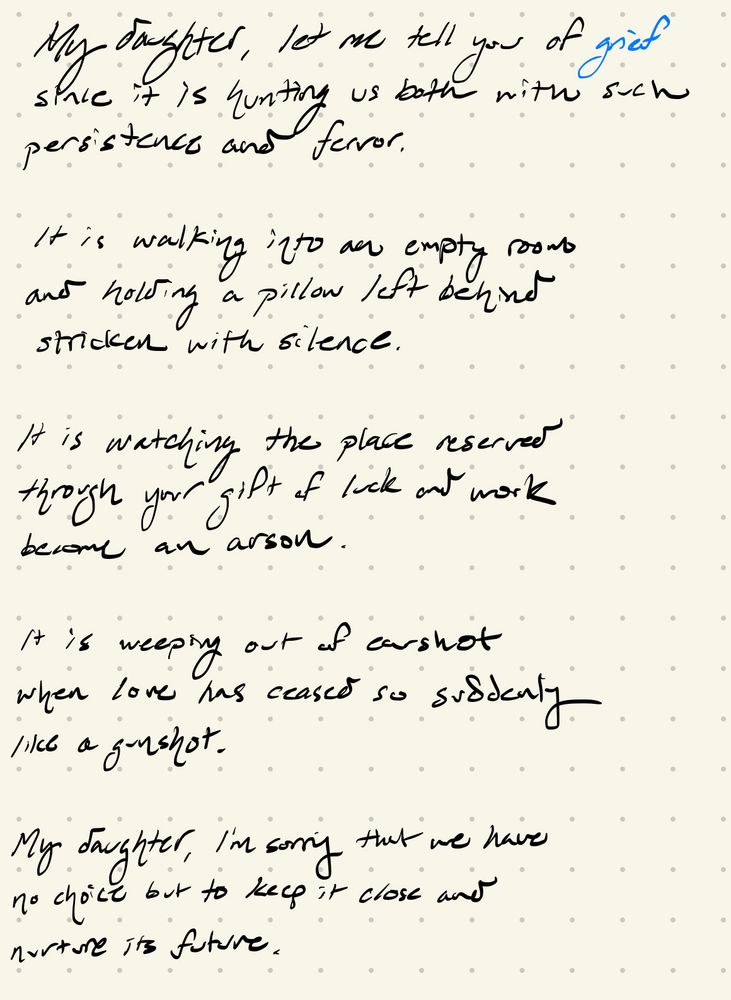 My daughter, let me tell you of grief
since it is hunting us both with such
persistence and fervor.
It is walking into an empty room
and holding a pillow left behind
stricken with silence.
It is watching the place reserved
through your gift of luck and work
become an arson.
It is weeping out of earshot
when love has ceased so suddenly
like a gunshot.
My daughter, I'm sorry that we have
no choice but to keep it close and
nurture its future.